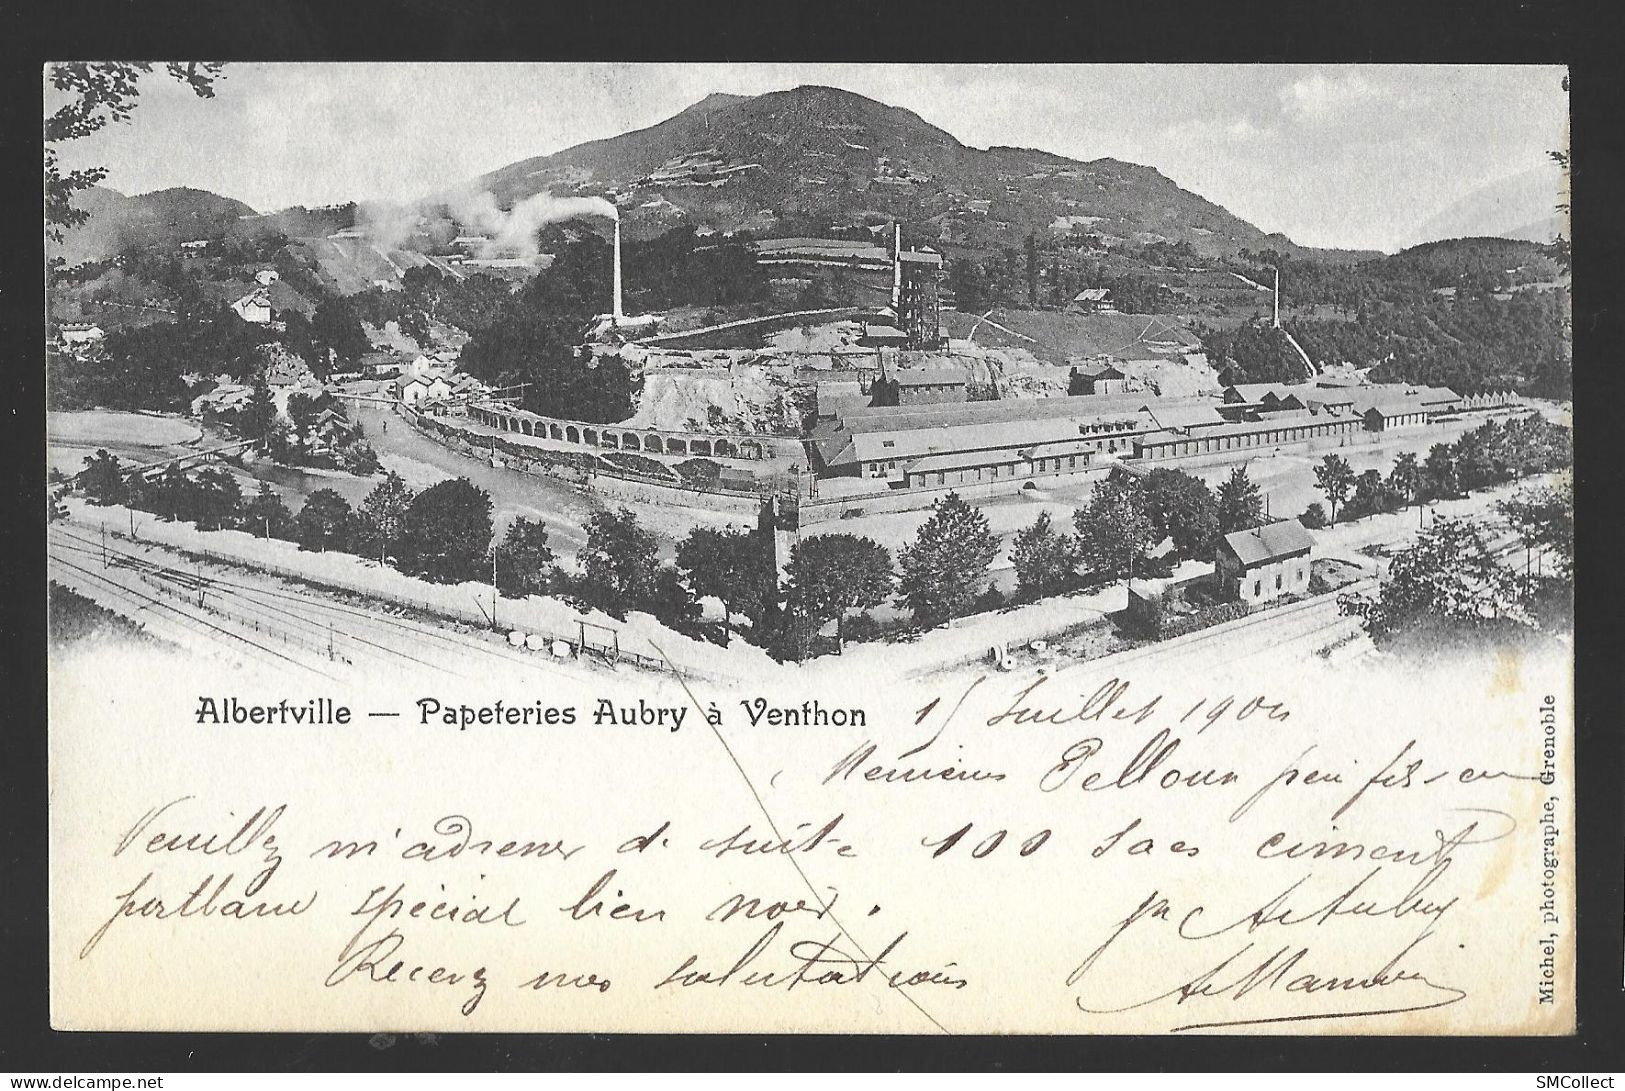 Albertville — Papeteries Aubry à Venthon
15 Juillet 1900
Pelloux
Veuillez m'adresser de suite 100 sacs ciment
portland spécial bien noir.
pr A. Aubry
Recevez mes salutations
Michel, photographe, Grenoble
SMCollect